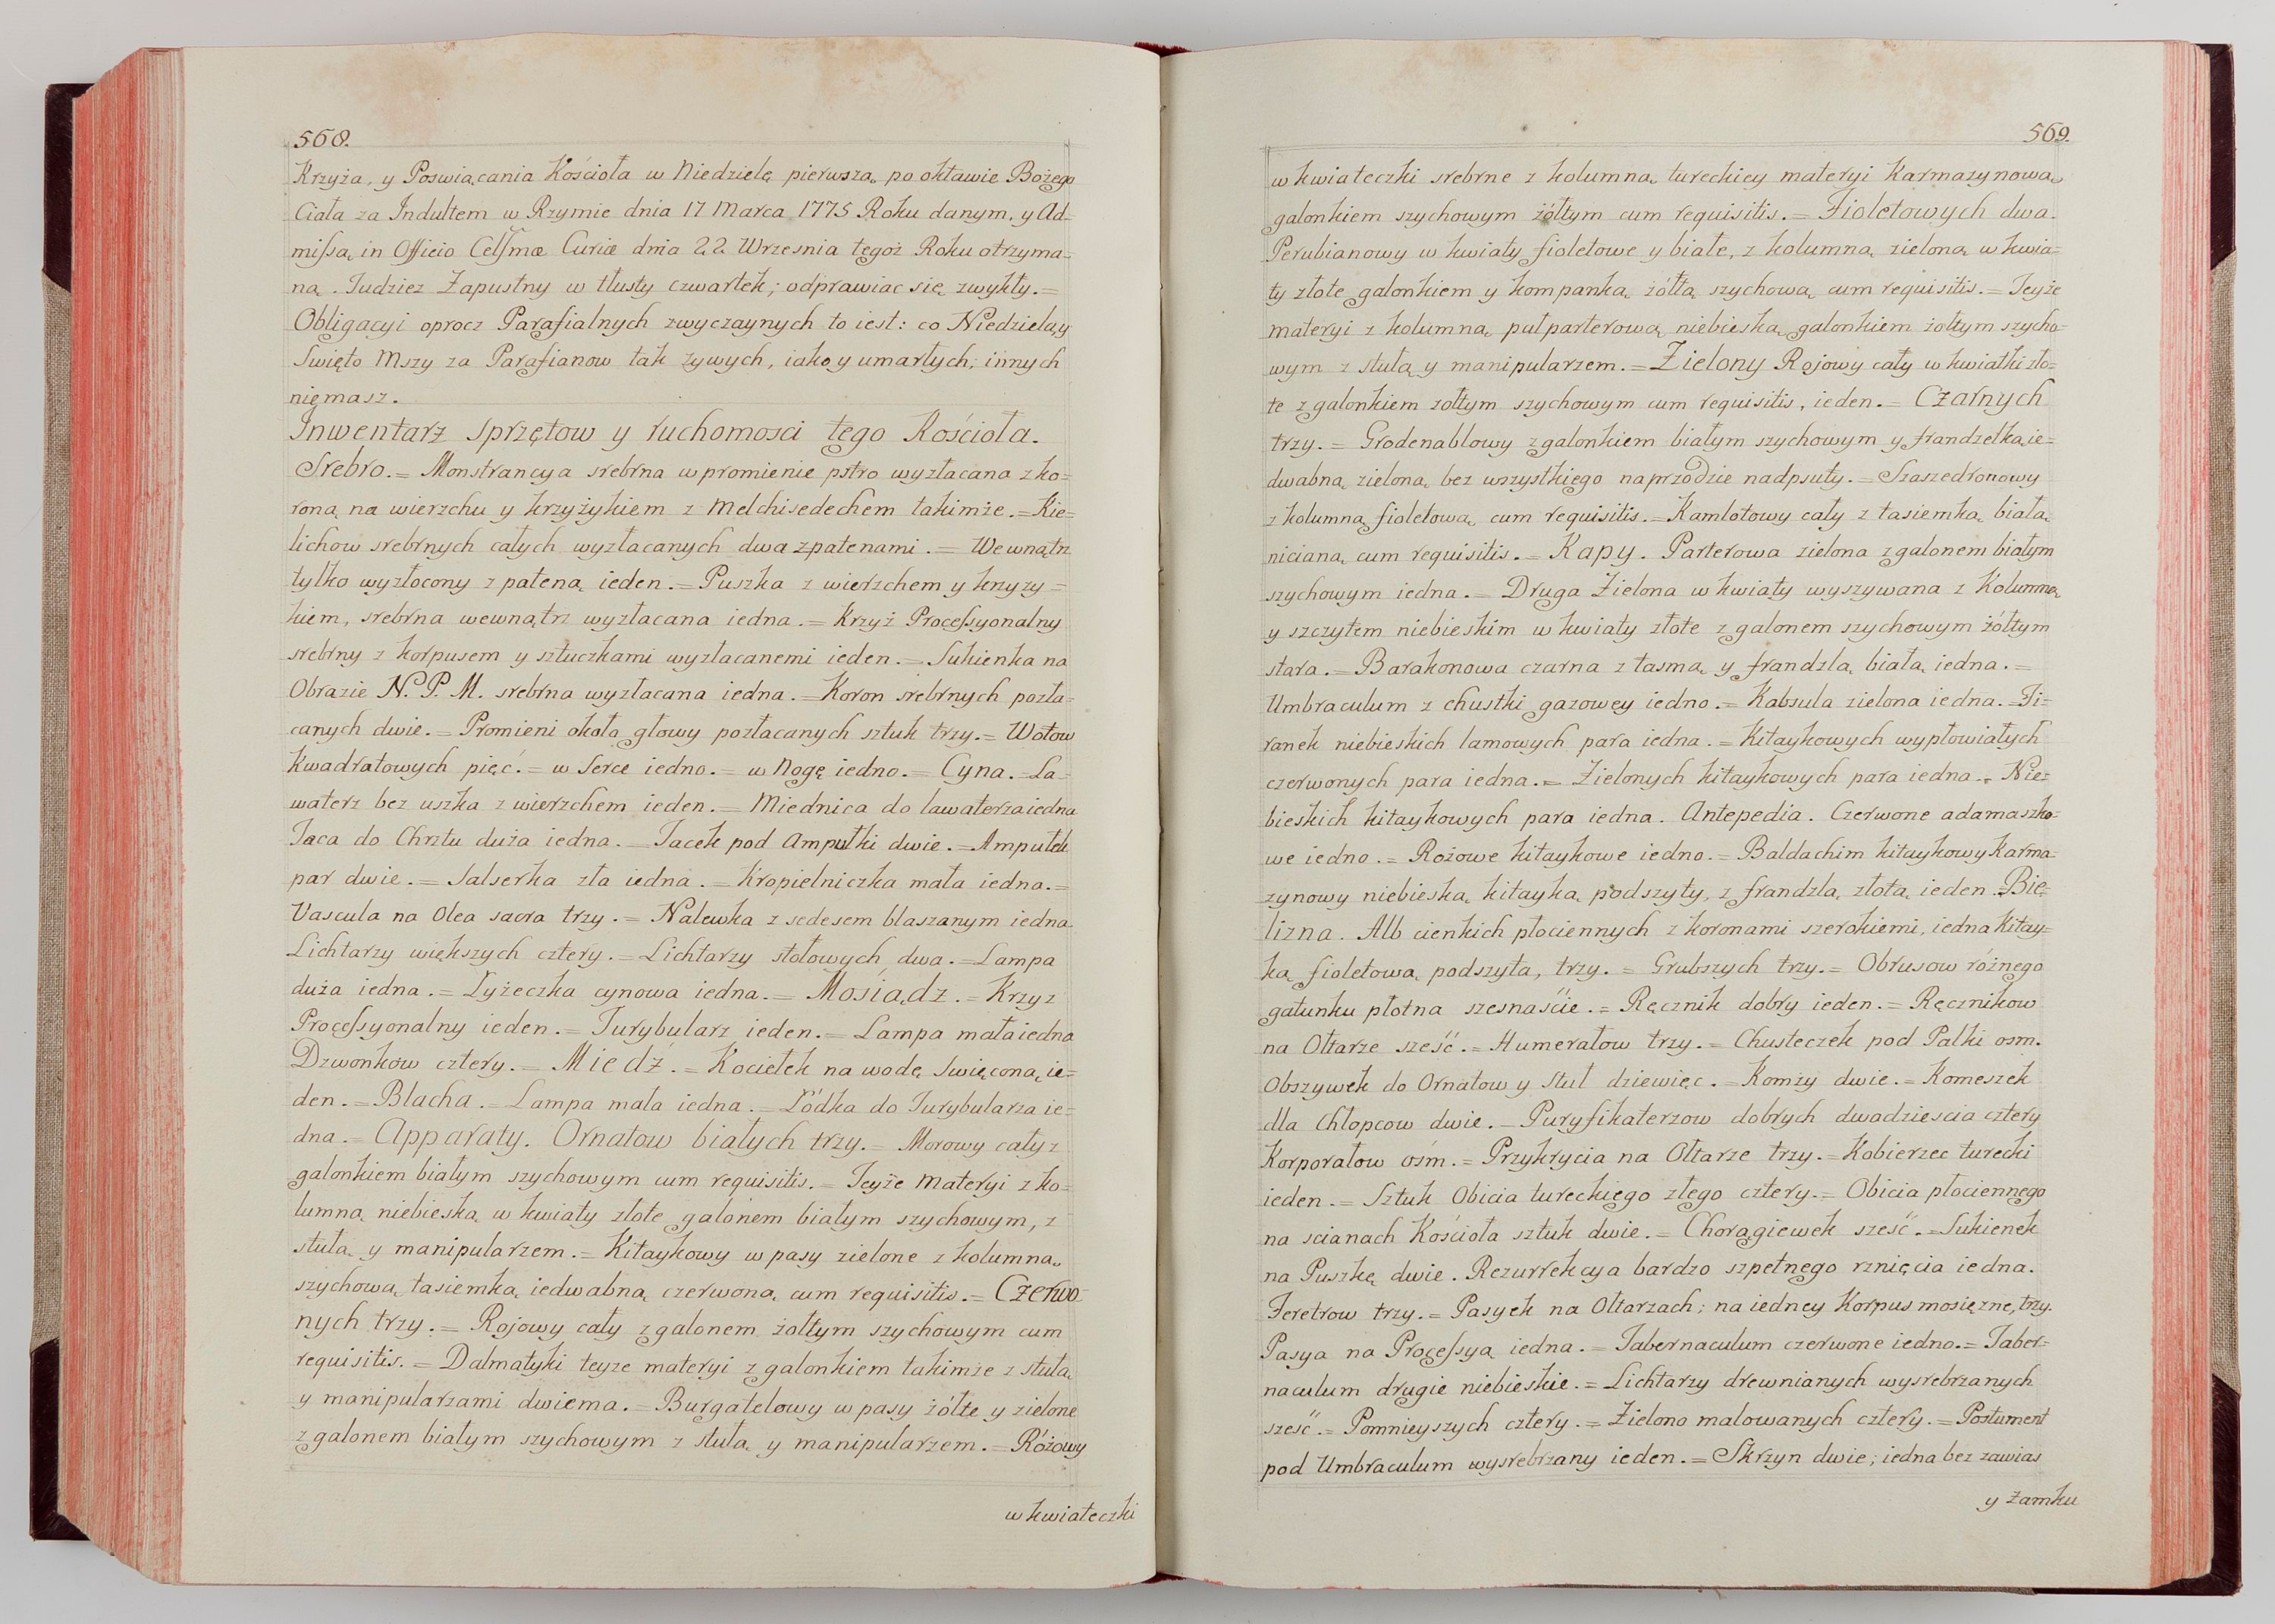 568.
Krzyża, y Poswiącania Kościoła w Niedzielę pierwszą po oktawie Bożego
Ciała za Indultem w Rzymie dnia 17 Marca 1775 Roku danym, y Ad-
mifsą in Officio Celfsmæ Curiæ dnia 22 Wrzesnia tegoż Roku otrzyma-
ną. Tudziez Zapustny w tłusty czwartek; odprawiac się zwykły.=
Obligacyi oprocz Parafialnych zwyczaynych to iest: co Niedzielę y
Swięto Mszy za Parafianow tak żywych, iako y umarłych; innych
niemasz.
Inwentarz sprzętow y ruchomosci tego Kościoła.
Srebro.= Monstrancya srebrna w promienie pstro wyzłacana z ko=
roną na wierzchu y krzyżykiem z Melchisedechem takimże.= Kie=
lichow srebrnych całych wyzłacanych dwa z patenami.= Wewnątrz
tylko wyzłocony z pateną ieden.= Puszka z wierzchem y krzyży=
kiem, srebrna wewnątrz wyzłacana iedna.= Krzyż Procefsyonalny
srebrny z korpusem y sztuczkami wyzłacanemi ieden.= Sukienka na
Obrazie N. P. M. srebrna wyzłacana iedna.= Koron srebrnych pozła-
canych dwie.= Promieni około głowy pozłacanych sztuk trzy.= Wotow
Kwadratowych pięć.= w Serce iedno.= w Nogę iedno.= Cyna.= La-
waterz bez uszka z wierzchem ieden.= Miednica do lawaterza iedna
Taca do Chrztu duża iedna.= Tacek pod Ampułki dwie.= Ampułek
par dwie.= Salserka zła iedna.= Kropielniczka mała iedna.=
Vascula na Olea sacra trzy.= Nalewka z sedesem blaszanym iedna.
Lichtarzy większych cztery.= Lichtarzy stołowych dwa.= Lampa
duża iedna.= Łyżeczka cynowa iedna.= Mosiądz.= Krzyz
Procefsyonalny ieden.= Turybularz ieden.= Lampa mała iedna
Dzwonkow cztery.= Miedź.= Kociełek na wodę Swięconą ie=
den.= Blacha.= Lampa mała iedna.= Łódka do Turybularza ie=
dna.= Apparaty. Ornatow białych trzy.= Morowy cały z
galonkiem białym szychowym cum requisitis.= Teyże Materyi z ko=
lumną niebieską w kwiaty złote galonem białym szychowym, z
stułą y manipularzem.= Kitaykowy w pasy zielone z kolumną
szychową tasiemką iedwabną czerwoną cum requisitis.= Czerwo-
nych trzy.= Rojowy cały z galonem żołtym szychowym cum
requisitis.= Dalmatyki teyze materyi z galonkiem takimże z stułą
y manipularzami dwiema.= Burgatelowy w pasy żółte y zielone
z galonem białym szychowym z stułą y manipularzem.= Różowy
w kwiateczki
569.
w kwiateczki srebrne z kolumną tureckiey materyi Karmazynową
galonkiem szychowym żółtym cum requisitis.= Fioletowych dwa.
Perubianowy w kwiaty fioletowe y białe, z kolumną zieloną w kwia=
ty złote galonkiem y kompanką żółtą szychową cum requisitis.= Teyże
materyi z kolumną pułparterową niebieską galonkiem żołtym szycho=
wym z stułą y manipularzem.= Zielony Rojowy cały w kwiatki zło=
te z galonkiem żołtym szychowym cum requisitis, ieden.= Czarnych
trzy.= Grodenablowy z galonkiem białym szychowym y frandzelką ie=
dwabną zieloną bez wszystkiego na przodzie nadpsuty.= Szaszedronowy
z kolumną fioletową cum requisitis.= Kamlotowy cały z tasiemką białą
nicianą cum requisitis.= Kapy. Parterowa zielona z galonem białym
szychowym iedna.= Druga Zielona w kwiaty wyszywana z Kolumną
y szczytem niebieskim w kwiaty złote z galonem szychowym żółtym
stara.= Barakonowa czarna z tasmą y frandzlą białą iedna.=
Umbraculum z chustki gazowey iedno.= Kabsula zielona iedna.= Fi=
ranek niebieskich lamowych para iedna.= Kitaykowych wypłowiałych
czerwonych para iedna.= Zielonych kitaykowych para iedna.= Nie=
bieskich kitaykowych para iedna. Antepedia. Czerwone adamaszko=
we iedno.= Rożowe kitaykowe iedno.= Baldachim kitaykowy Karma-
zynowy niebieską kitayką podszyty, z frandzlą złotą ieden.= Bie=
lizna. Alb cienkich płociennych z koronami szerokiemi, iedna Kitay=
ką fioletową podszyta, trzy.= Grubszych trzy.= Obrusow różnego
gatunku płotna szesnaście.= Ręcznik dobry ieden.= Ręcznikow
na Ołtarze sześć.= Humerałow trzy.= Chusteczek pod Palki osm.
Obszywek do Ornatow y Stuł dziewięc.= Komży dwie.= Komeszek
dla Chłopcow dwie.= Puryfikaterzow dobrych dwadziescia cztery
Korporałow osm.= Przykrycia na Ołtarze trzy.= Kobierzec turecki
ieden.= Sztuk Obicia tureckiego złego cztery.= Obicia płociennego
na scianach Kościoła sztuk dwie.= Chorągiewek sześć.= Sukienek
na Puszkę dwie. Rezurrekcya bardzo szpetnego rznięcia iedna.
Feretrow trzy.= Pasyek na Ołtarzach; na iedney Korpus mosiężne, trzy.
Pasya na Procefsyą iedna.= Tabernaculum czerwone iedno.= Taber=
naculum drugie niebieskie.= Lichtarzy drewnianych wysrebrzanych
sześć.= Pomnieyszych cztery.= Zielono malowanych cztery.= Postument
pod Umbraculum wysrebrzany ieden.= Skrzyn dwie; iedna bez zawias
y zamku